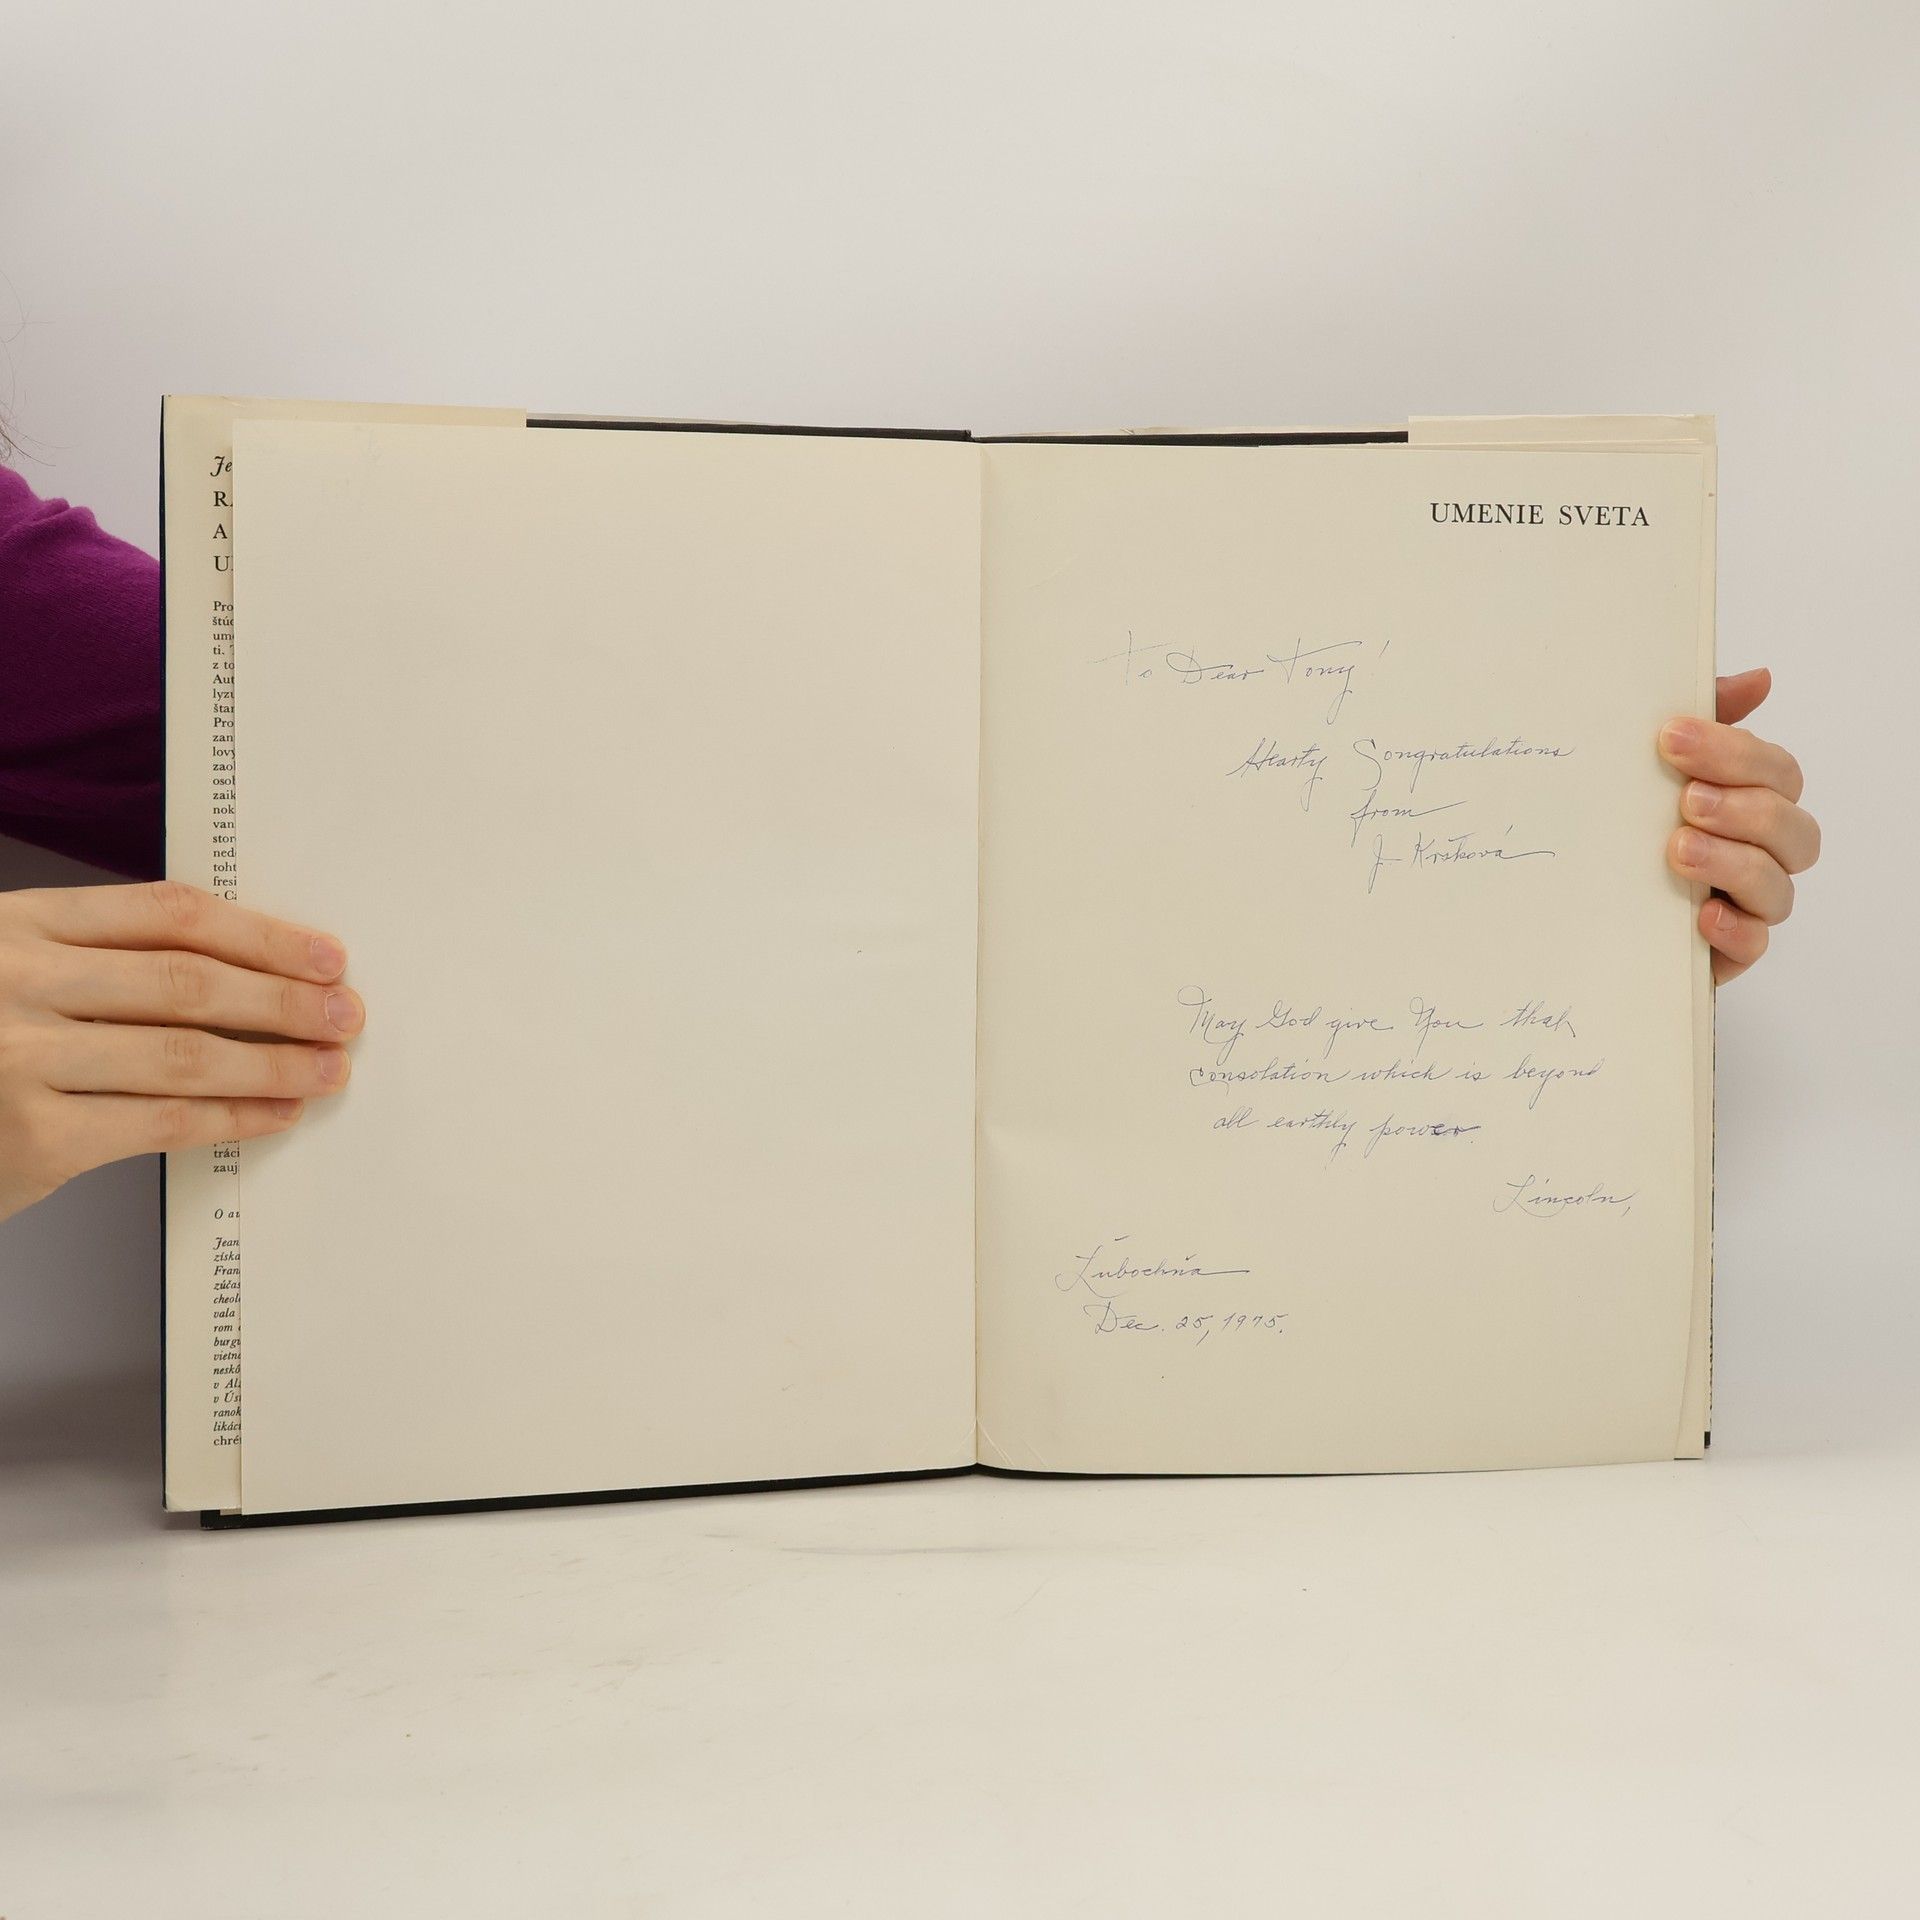 Je
R
A
U
Pro
štúd
ume
ti.
z to
Aut
lyzu
štan
Pro
zan
lovy
zaob
osob
zaik
nok
van
stor
ned
toht
fresi
Ca
tráci
zauj
O au
Jean
získa
Fran
zúčas
cheol
vala
rom
burgu
vietna
neskô
v Al
v Ús
ranok
likáci
chré
UMENIE SVETA
To Dear Tony!
Hearty Congratulations
from
J. Kršková
May God give You that
consolation which is beyond
all earthly power.
Lincoln,
Ľubochňa
Dec. 25, 1975.